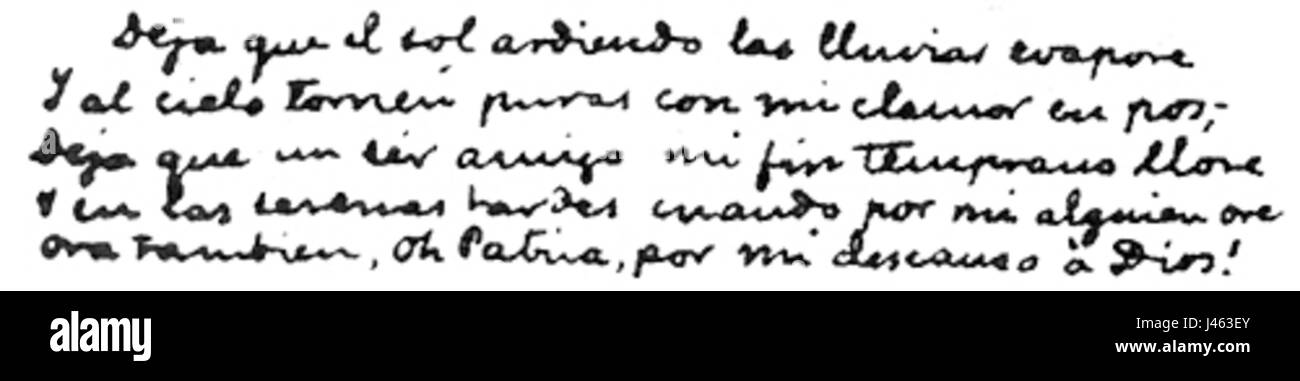 Deja que el sol ardiendo las lluvias evapore
Y al cielo tornen puras con mi clamor en pos,-
Deja que un sér amigo mi fin temprano llore
Y en las serenas tardes cuando por mi alguien ore
Ora tambien, Oh Patria, por mi descanso à Dios!
a
alamy
Image ID: J463EY
www.alamy.com